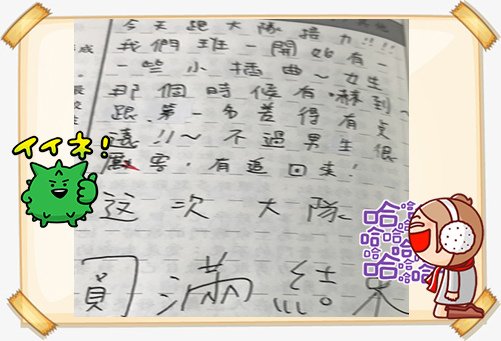 今天跑大隊接力!!!!
我們班一開始有一
一些小插曲~女生
那個時候有嚇到~
跟第一名差得有點
遠!!~不過男生很
厲害,有追回來!
這次大隊
圓滿結束
イイネ!
哈哈哈哈哈哈哈